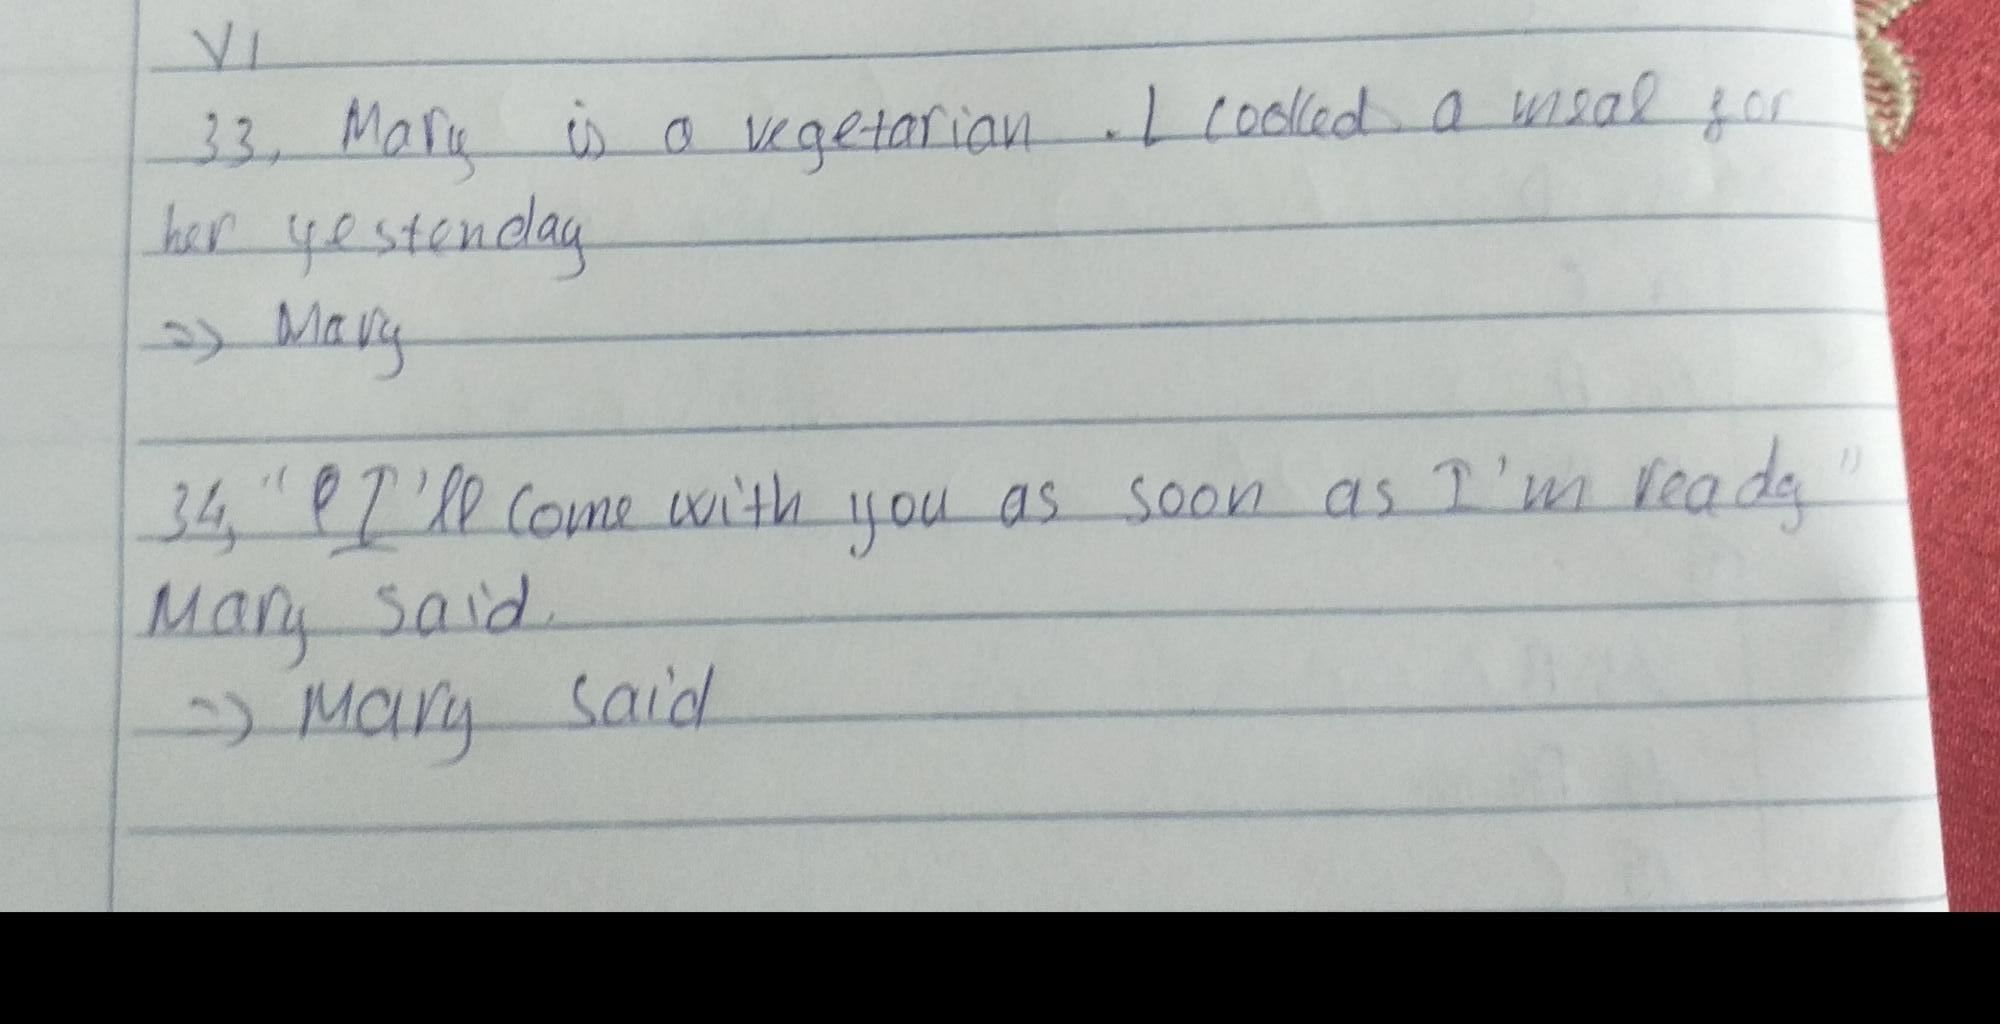 VI
33, Mary is a vegetarian . I cooked a meal for
her yesterday
=> Mary
34, "I'll come with you as soon as I'm ready"
Mary said.
=> Mary said